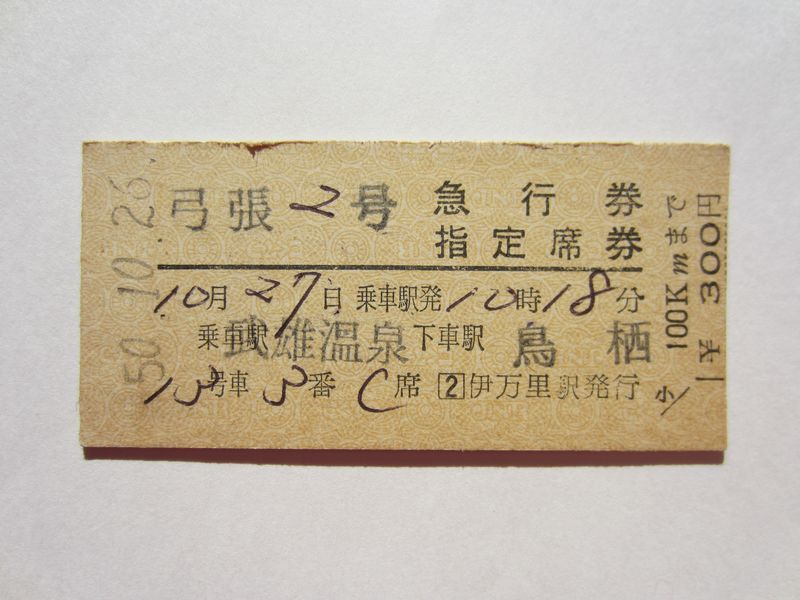 50.10.26.
弓張 2 号 急行券
指定席券
10月27日 乗車駅発10時18分
乗車駅 武雄温泉 下車駅 鳥栖
13号車 3番 C席 2 伊万里駅発行
小 100Kmまで
¥300円